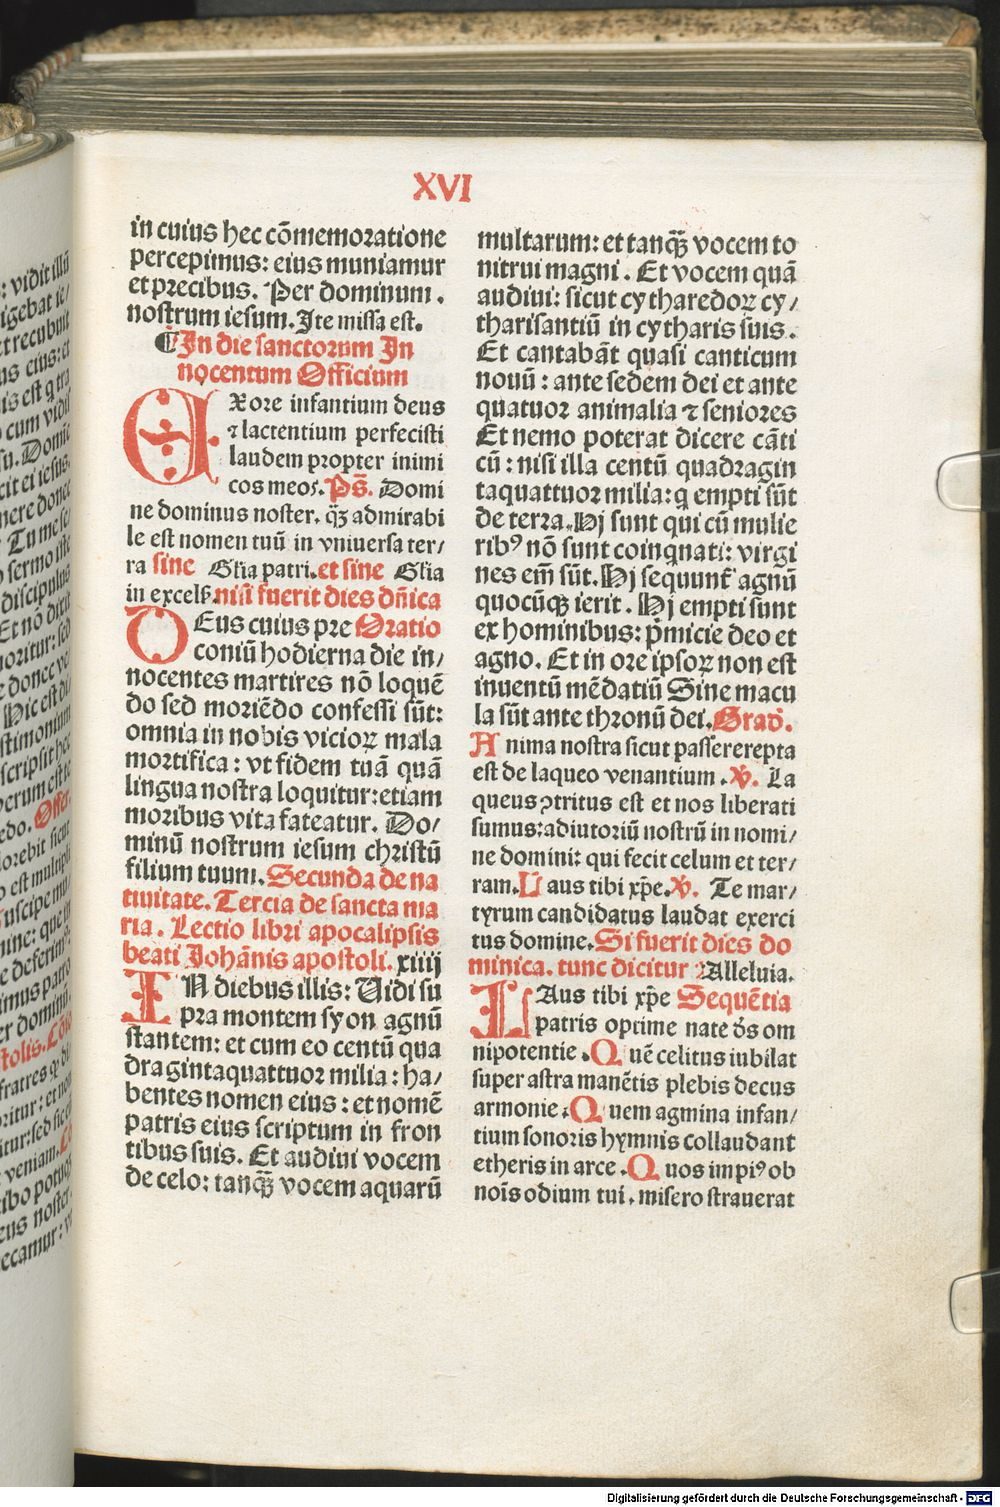 XVI
in cuius hec cõmemoratione
percepimus: eius muniamur
et precibus. Per dominum.
nostrum iesum. Ite missa est.
¶ In die sanctorum In
nocentum Officium
EXore infantium deus
⁊ lactentium perfecisti
laudem propter inimi
cos meos. Ps̃. Domi
ne dominus noster. qȝ̃ admirabi
le est nomen tuũ in vniuersa ter/
ra sine Glia patri. et sine Glia
in excels. nisi fuerit dies dñica
DEus cuius pre Oratio
coniũ hodierna die in/
nocentes martires nõ loquẽ
do sed moriẽdo confessi sũt:
omnia in nobis vicioꝝ mala
mortifica: vt fidem tuã quã
lingua nostra loquitur: etiam
moribus vita fateatur. Do/
minũ nostrum iesum christũ
filium tuum. Secunda de na
tiuitate. Tercia de sancta ma
ria. Lectio libri apocalipsis
beati Johãnis apostoli. xiiij
IN diebus illis: Vidi su
pra montem syon agnũ
stantem: et cum eo centũ qua
dragintaquattuor milia: ha/
bentes nomen eius: et nomẽ
patris eius scriptum in fron
tibus suis. Et audiui vocem
de celo: tanqȝ̃ vocem aquarũ
multarum: et tanqȝ̃ vocem to
nitrui magni. Et vocem quã
audiui: sicut cytharedoꝝ cy/
tharisantiũ in cytharis suis.
Et cantabãt quasi canticum
nouũ: ante sedem dei et ante
quatuor animalia ⁊ seniores
Et nemo poterat dicere cãti
cũ: nisi illa centũ quadragin
taquattuor milia: q empti sũt
de terra. Hj sunt qui cũ mulie
ribꝰ nõ sunt coinqnati: virgi
nes em̃ sũt. Hj sequunt̃ agnũ
quocũqȝ ierit. Hj empti sunt
ex hominibus: p̃micie deo et
agno. Et in ore ipsoꝝ non est
inuentũ mẽdatiũ Sine macu
la sũt ante thronũ dei. Grad̃.
Anima nostra sicut passer erepta
est de laqueo venantium. ℣. La
queus ꝯtritus est et nos liberati
sumus: adiutoriũ nostrũ in nomi/
ne domini: qui fecit celum et ter/
ram. Laus tibi xp̃e. ℣. Te mar/
tyrum candidatus laudat exerci
tus domine. Si fuerit dies do
minica. tunc dicitur Alleluia.
LAus tibi xp̃e Sequẽtia
patris optime nate d̃s om
nipotentie. Quẽ celitus iubilat
super astra manẽtis plebis decus
armonie. Quem agmina infan/
tium sonoris hymnis collaudant
etheris in arce. Quos impiꝰ ob
noĩs odium tui. misero strauerat
Digitalisierung gefördert durch die Deutsche Forschungsgemeinschaft - DFG